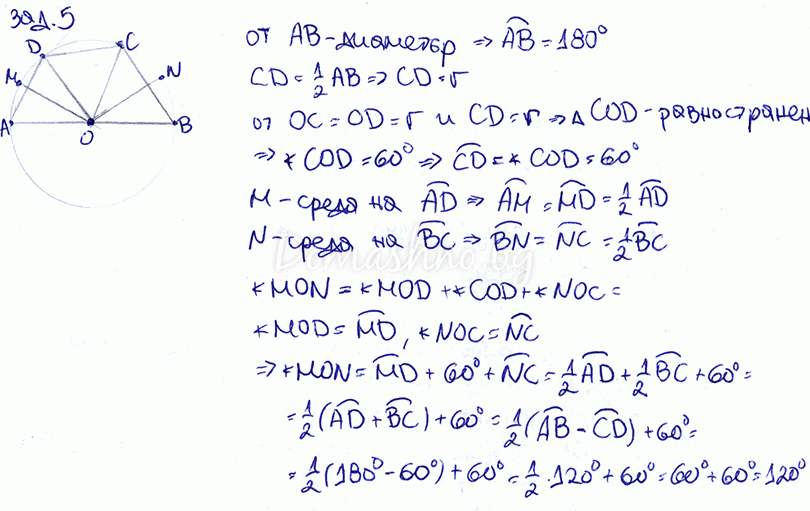 зад.5
D
C
M
N
A
O
B
от AB-диаметър ⇒ A͡B = 180°
CD = 1/2 AB ⇒ CD = r
от OC = OD = r и CD = r ⇒ Δ COD - равностранен
⇒ ∢ COD = 60° ⇒ C͡D = ∢ COD = 60°
M - среда на A͡D ⇒ A͡M = M͡D = 1/2 A͡D
N - среда на B͡C ⇒ B͡N = N͡C = 1/2 B͡C
Domashno.bg
∢ MON = ∢ MOD + ∢ COD + ∢ NOC =
∢ MOD = M͡D, ∢ NOC = N͡C
⇒ ∢ MON = M͡D + 60° + N͡C = 1/2 A͡D + 1/2 B͡C + 60° =
= 1/2 (A͡D + B͡C) + 60° = 1/2 (A͡B - C͡D) + 60° =
= 1/2 (180° - 60°) + 60° = 1/2 . 120° + 60° = 60° + 60° = 120°